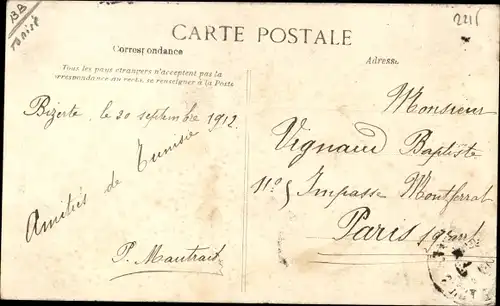 BB
Tunisie
2211
CARTE POSTALE
Correspondance
Tous les pays étrangers n'acceptent pas la
correspondance au recto, se renseigner à la Poste
Adresse
Bizerte, le 20 septembre 1912.
Amitiés de Tunisie
P. Mautrait
Monsieur
Vignaud Baptiste
Impasse Montferrat
Paris